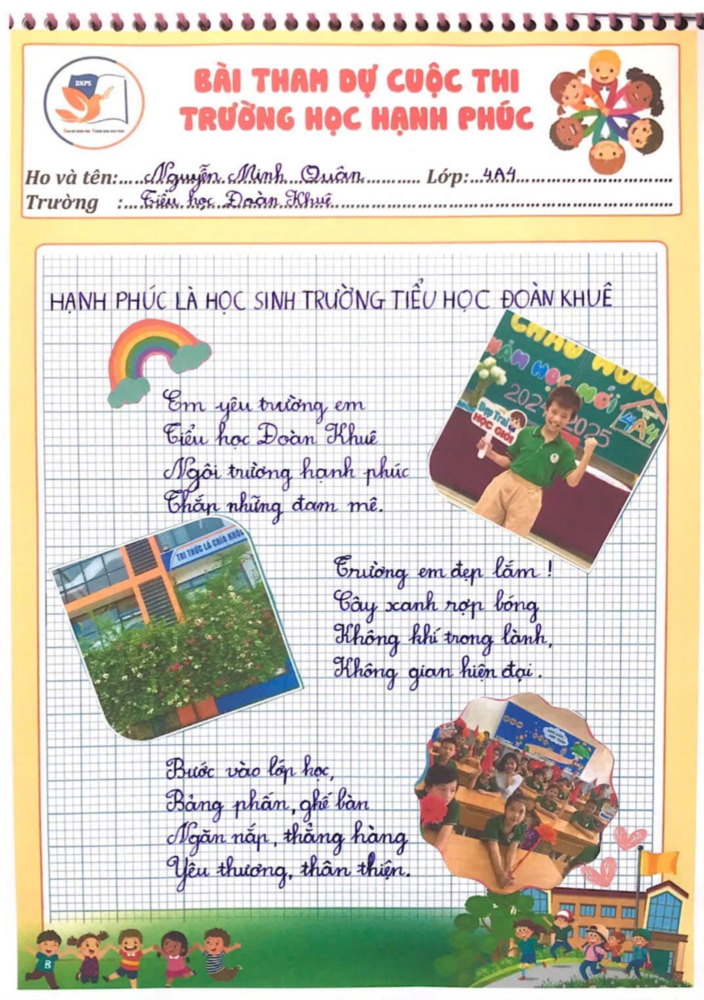 DKPS
BÀI THAM DỰ CUỘC THI
TRƯỜNG HỌC HẠNH PHÚC
Họ và tên:.....Nguyễn Minh Quân........... Lớp:...4A4
Trường :...Tiểu học Đoàn Khuê
HẠNH PHÚC LÀ HỌC SINH TRƯỜNG TIỂU HỌC ĐOÀN KHUÊ
Em yêu trường em
Tiểu học Đoàn Khuê
Ngôi trường hạnh phúc
Thắp những đam mê.
CHÀO MỪNG
NĂM HỌC MỚI
2024 2025
4A4
Đẹp Trai
HỌC GIỎI
TRI THỨC LÀ CHÌA KHÓA
Trường em đẹp lắm !
Cây xanh rợp bóng
Không khí trong lành,
Không gian hiện đại.
Bước vào lớp học,
Bảng phấn, ghế bàn
Ngăn nắp, thẳng hàng
Yêu thương, thân thiện.